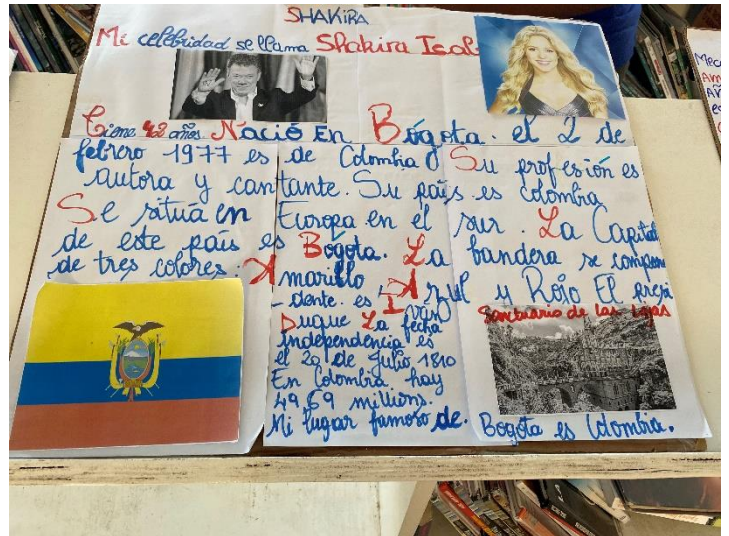 SHAKIRA
Mi celebridad se llama Shakira Isab
Tiene 42 años. Nació En Bógota. el 2 de
febrero 1977 es de Colombia Su profesión es
autora y cantante. Su país es colombia
Se sitúa en Europa en el sur. La Capital
de este país es Bogota. La bandera se compone
de tres colores. Amarillo Azul y Rojo El presi
-dente. es Iván
Duque La fecha
independencia es
el 20 de Julio 1810
En Colombia hay
49,69 millions.
Mi lugar famoso de.
Santuario de las Lajas
Bogota es Colombia.